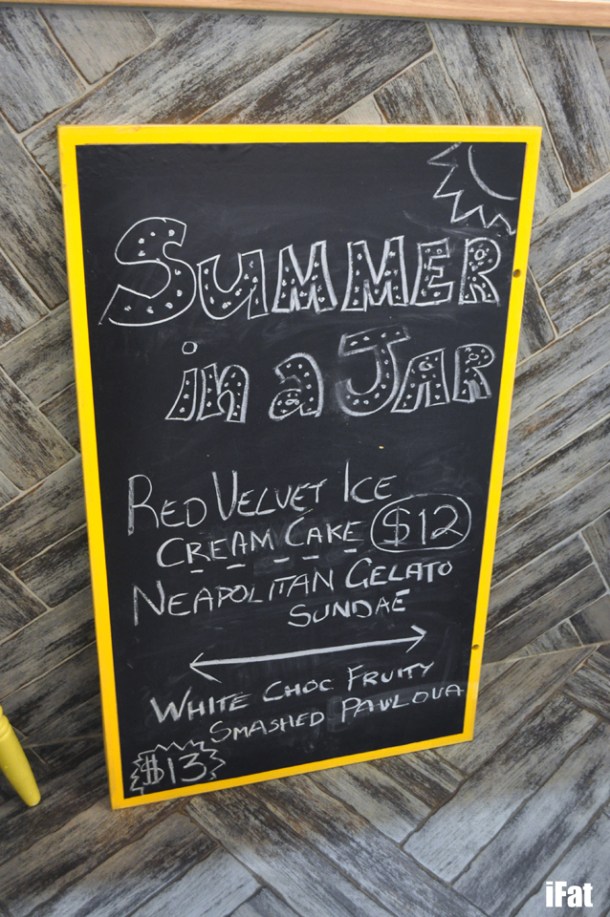 SUMMER
in a JAR
RED VELVET ICE
CREAM CAKE $12
NEAPOLITAN GELATO
SUNDAE
WHITE CHOC FRUITY
SMASHED PAVLOVA
$13
iFat